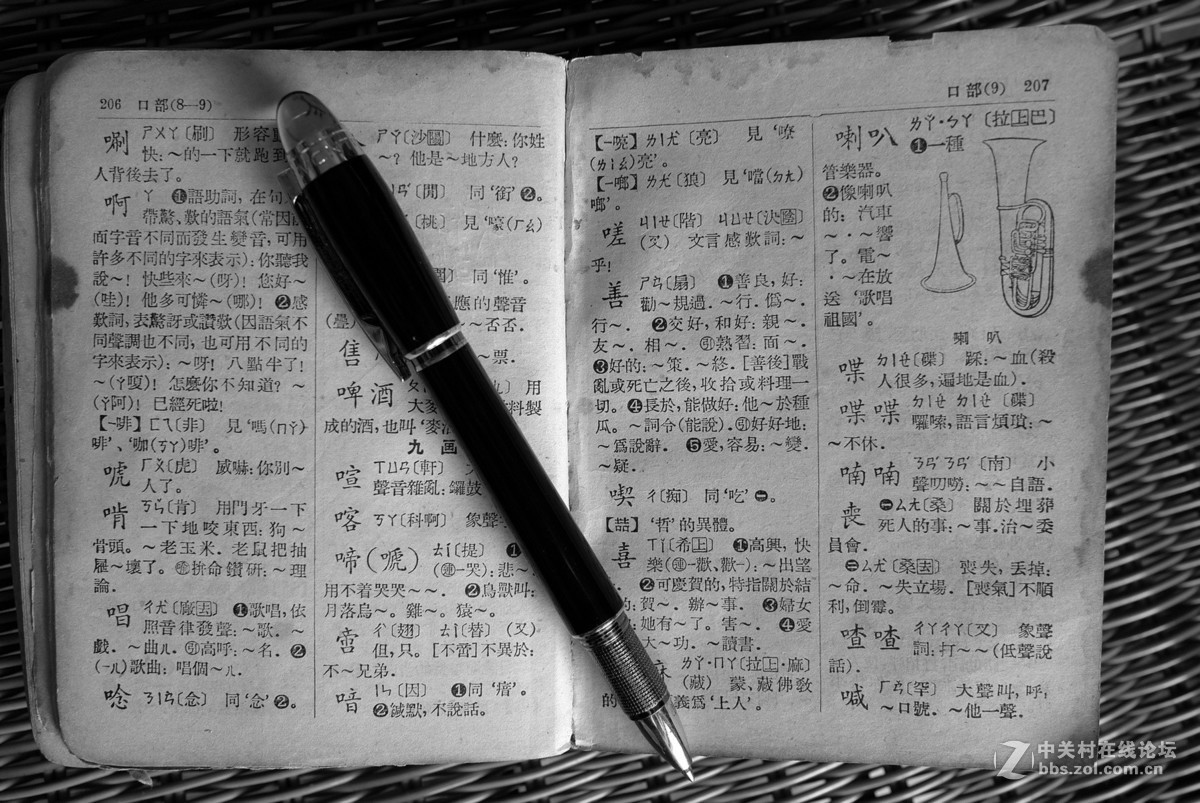 206 口部(8—9)
唰 ㄕㄨㄚ〔刷〕 形容
快:～的一下就跑到
人背後去了。
啊 ㄚ ❶語助詞, 在句
帶驚、歎的語氣(常因
面字音不同而發生變音, 可用
許多不同的字來表示): 你聽我
說～! 快些來～(呀)! 您好～
(哇)! 他多可憐～(哪)! ❷感
歎詞, 表驚訝或讚歎(因語氣不
同聲調也不同, 也可用不同的
字來表示): ～呀! 八點半了!
～(ㄚ嗄)! 怎麼你不知道? ～
(ㄚ阿)! 已經死啦!
【-啡】ㄈㄟ〔非〕 見‘嗎(ㄇㄚ)
啡’、‘咖(ㄎㄚ)啡’。
唬 ㄏㄨ〔虎〕 威嚇: 你別～
人了。
啃 ㄎㄣ〔肯〕 用門牙一下
一下地咬東西: 狗～
骨頭。～老玉米. 老鼠把抽
屜～壞了。 拚命鑽研: ～理
論.
唱 ㄔㄤ〔廠去〕 ❶歌唱, 依
照音律發聲: ～歌. ～
戲. ～曲ㄦ. 高呼: ～名. ❷
(-ㄦ)歌曲: 唱個～ㄦ.
唸 ㄋㄧㄢ〔念〕 同‘念’❷。
ㄕㄚ〔沙〕 什麼: 你姓
～? 他是～地方人?
〔閒〕 同‘銜’❷。
〔桃〕 見‘嚎(ㄏㄠ)
同‘惟’.
應的聲音
～否否.
售
～票.
啤酒 用
大麥 料製
成的酒, 也叫‘麥
九 画
喧 ㄒㄩㄢ〔軒〕
聲音雜亂: 鑼鼓
喀 ㄎㄚ〔科啊〕 象聲
啼(嗁) ㄊㄧ〔提〕 ❶
(-哭): 悲～.
用不着哭哭～～. ❷鳥獸叫:
月落烏～. 雞～. 猿～.
啻 ㄔ〔翅〕 ㄊㄧ〔替〕 (又)
但, 只. [不啻]不異於:
不～兄弟.
喑 ㄧㄣ〔因〕 ❶同‘瘖’.
❷緘默, 不說話.
口部(9) 207
【-喨】ㄌㄧㄤ〔亮〕 見‘嘹
(ㄌㄧㄠ)亮’.
【-啷】ㄌㄤ〔狼〕 見‘噹(ㄉㄤ)
啷’.
嗟 ㄐㄧㄝ〔階〕 ㄐㄩㄝ
(又) 文言感歎詞: ～
乎!
善 ㄕㄢ〔扇〕 ❶善良, 好:
勸～規過. ～行. 僞～.
行～. ❷交好, 和好: 親～.
友～. 相～. 熟習: 面～.
❸好的: ～策. ～終. [善後]戰
亂或死亡之後, 收拾或料理一
切。❹長於, 能做好: 他～於種
瓜。～詞令(能說). 好好地:
～爲說辭. ❺愛, 容易: ～變.
～疑.
喫 ㄔ〔痴〕 同‘吃’㊀.
【喆】 ‘哲’的異體。
喜 ㄒㄧ〔希上〕 ❶高興, 快
樂(-歡、歡-): ～出望
❷可慶賀的, 特指關於結
的: 賀～. 辦～事. ❸婦女
她有～了。害～. ❹愛
大～功. ～讀書.
ㄌㄚ·ㄇㄚ〔拉上·麻〕
(藏) 蒙、藏佛敎
的 義爲‘上人’.
喇叭 ㄌㄚ·ㄅㄚ〔拉上巴〕
❶一種
管樂器。
❷像喇叭
的: 汽車
～·～響
了。電～
·～在放
送‘歌唱
祖國’。
喇 叭
喋 ㄉㄧㄝ〔碟〕 踩: ～血(殺
人很多, 遍地是血).
喋喋 ㄉㄧㄝ ㄉㄧㄝ〔碟〕
囉嗦, 語言煩瑣: ～
～不休.
喃喃 ㄋㄢ ㄋㄢ〔南〕 小
聲叨嘮: ～～自語.
喪 ㊀ㄙㄤ〔桑〕 關於埋葬
死人的事: ～事. 治～委
員會.
㊁ㄙㄤ〔桑去〕 喪失, 丢掉:
～命. ～失立場. [喪氣]不順
利, 倒霉.
喳喳 ㄔㄚㄔㄚ〔叉〕 象聲
詞: 打～～(低聲說
話).
喊 ㄏㄢ〔罕〕 大聲叫, 呼:
～口號. ～他一聲.
中关村在线论坛
bbs.zol.com.cn